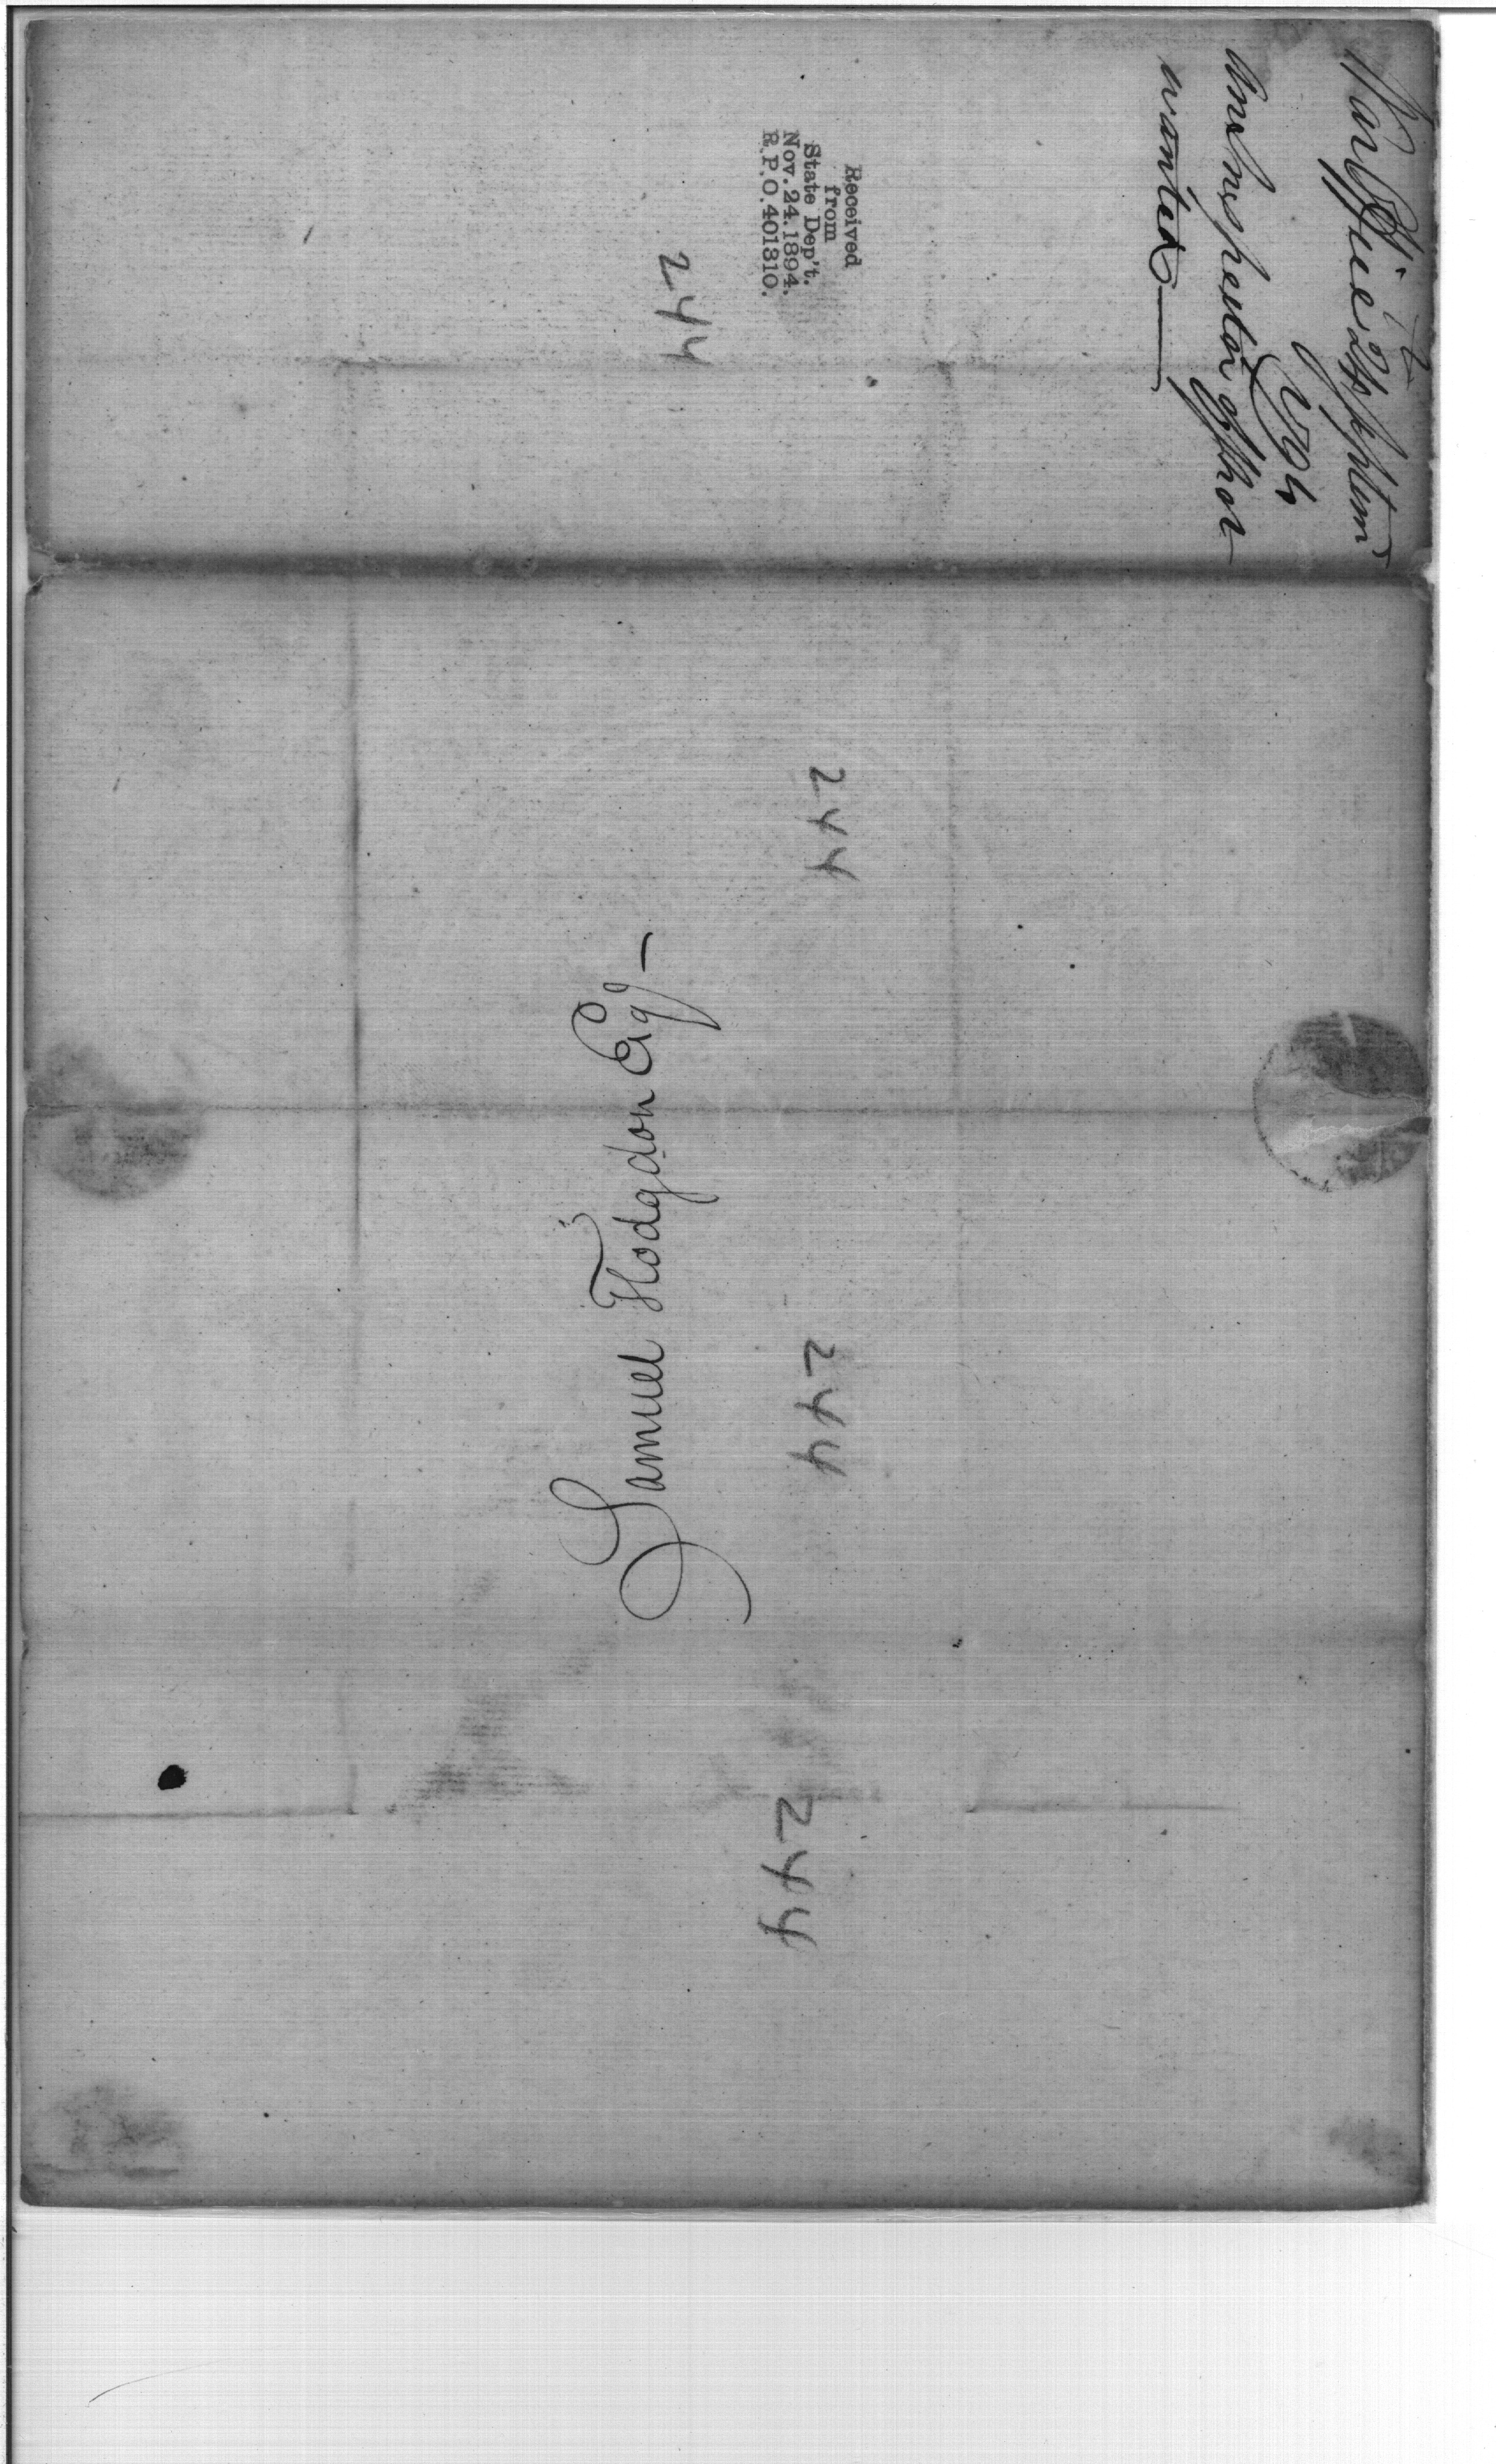 War Office 24 Septem
1794
An Inspector of shot
wanted
Received
from
State Dep't.
Nov. 24. 1894.
R.P.O. 401810.
244
244
Samuel Hodgdon Esq
244
244